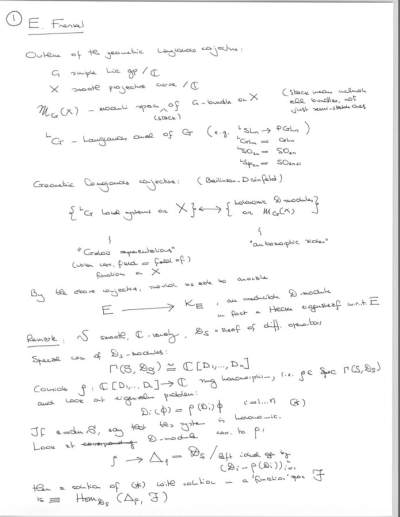 ① E. Frenkel
Outline of the geometric Langlands conjecture:
G simple Lie gp / ℂ
X smooth projective curve / ℂ
M_G(X) - moduli space of G-bundles on X
(stack)
(stack mean include all bundles, not just semi-stable ones
ᴸG - Langlands dual of G (e.g. ᴸSLn → PGLn
ᴸGLn = GLn
ᴸSO2n = SO2n
ᴸSp2n = SO2n+1
Geometric Langlands conjecture: (Beilinson-Drinfeld)
{ ᴸG local systems on X } ⟷ { holonomic D-modules on M_G(X) }
"Galois representations" "automorphic side"
function on X
By the above conjecture, we are able to
E ⟶ K_E, an irreducible D-module
in fact a Hecke eigensheaf w.r.t. E
Remark: S smooth, ℂ-variety, D_S = sheaf of diff. operators
Special case of D_S-modules:
Γ(S, D_S) ≅ ℂ[D1,...,Dn]
Consider ρ: ℂ[D1,...,Dn] → ℂ ring homomorphism, i.e. ρ ∈ Spec Γ(S, D_S)
and look at eigenvalue problem:
Di(φ) = ρ(Di)φ i=1...n (*)
If , say that this system is holonomic.
Look at corresponding D-module corr. to ρ,
ρ → Δρ = D_S / left ideal gen by (Di - ρ(Di))i=1..n
then a solution of (*) with solution - a "function" space F
is ≡ Hom_{D_S}(Δρ, F)